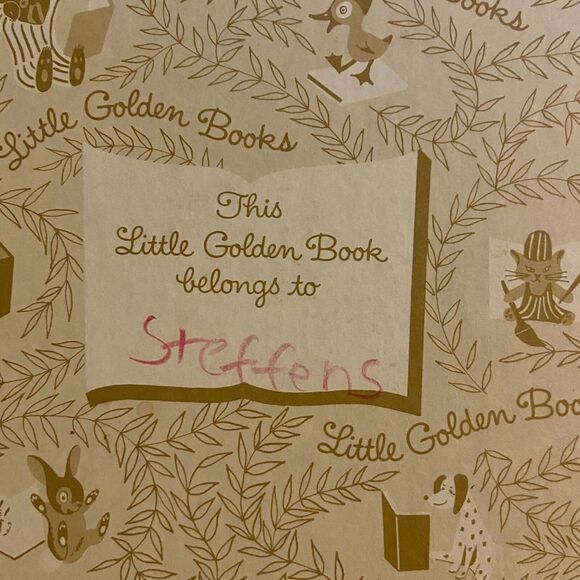 Books
Little Golden Books
This
Little Golden Book
belongs to
Steffens
Little Golden Boo